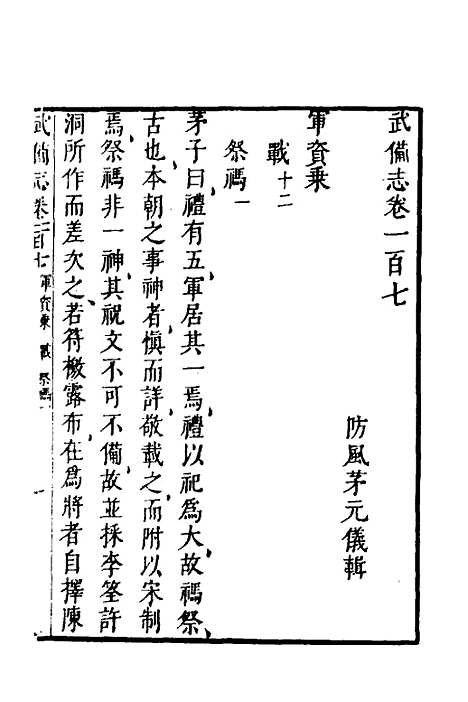 武備志卷一百七
防風茅元儀輯
軍資乗
戰十二
祭禡一
茅子曰禮有五軍居其一焉禮以祀爲大故禡祭
古也本朝之事神者愼而詳敬載之而附以宋制
焉祭禡非一神其祝文不可不備故並採李筌許
洞所作而差次之若符檄露布在爲將者自擇陳
武備志卷一百七 軍資乗 戰 祭禡一 一